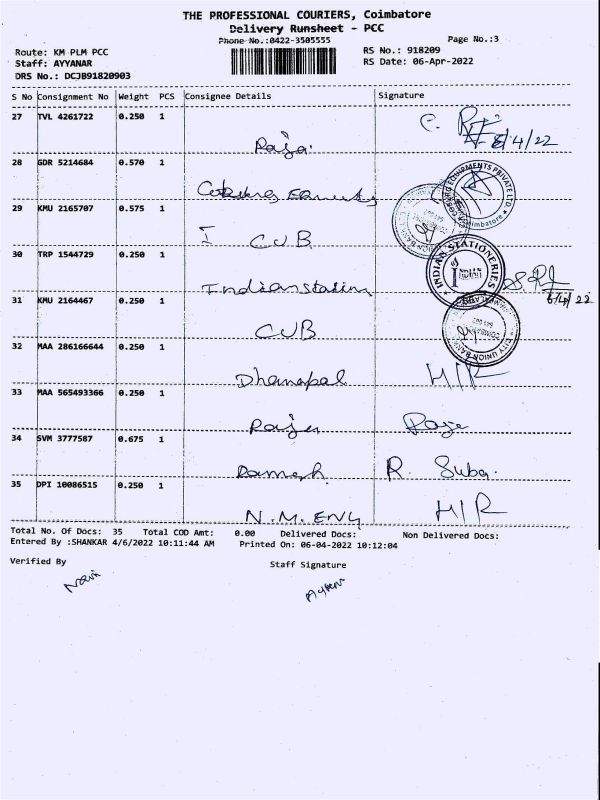 THE PROFESSIONAL COURIERS, Coimbatore
Delivery Runsheet - PCC
Phone No.:0422-3505555
Page No.:3
Route: KM PLM PCC
RS No.: 918209
Staff: AYYANAR
RS Date: 06-Apr-2022
DRS No.: DCJB91820903
S No Consignment No Weight PCS Consignee Details Signature
27 TVL 4261722 0.250 1
Raja
6/4/22
28 GDR 5214684 0.570 1
COSBURG EQUIPMENTS PRIVATE LTD. Coimbatore
29 KMU 2165707 0.575 1
CUB
30 TRP 1544729 0.250 1
Indian
INDIAN STATIONERIES
6/4/22
31 KMU 2164467 0.250 1
CUB
CITY UNION BANK
32 MAA 286166644 0.250 1
Dhanapal H/R
33 MAA 565493366 0.250 1
Raja Raja
34 SVM 3777587 0.675 1
Ramesh R. Suba
35 DPI 10086515 0.250 1
N.M. ENG H/R
Total No. Of Docs: 35 Total COD Amt: 0.00 Delivered Docs: Non Delivered Docs:
Entered By :SHANKAR 4/6/2022 10:11:44 AM Printed On: 06-04-2022 10:12:04
Verified By
Staff Signature